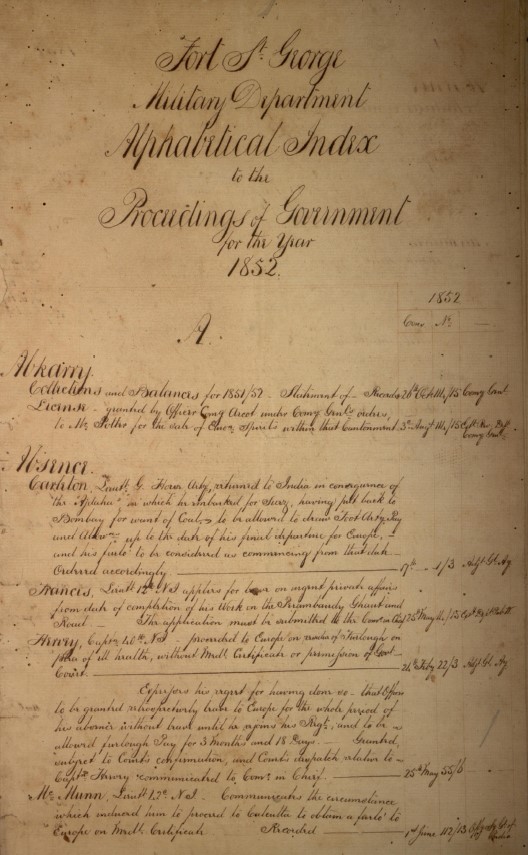 Fort St. George
Military Department
Alphabetical Index
to the
Proceedings of Government
for the Year
1852.
1852
Cons No.
A.
Abkarry.
Collections and Balances for 1851/52 - Statement of - Recorded 26th Octr
License - granted by Officer Comg Arcot under Comg Genl's orders,
to Mr. for the sale of Euro. Spirits within that Cantonment 3d Augt
Comg Genl.
Absence.
Carlton, Lieutt. G. Horse Arty, returned to India in consequence of
the in which he embarked for Suez, having put back to
Bombay for want of Coal, to be allowed to draw Foot Arty Pay
and up to the date of his final departure for Europe, -
and his furlo' to be considered as commencing from that date -
Ordered accordingly 17th 1/3 Adjt Gl. Ay
Francis, Lieutt 12th N.I applies for leave on urgent private affairs
from date of completion of his Work on the Ghaut and
Road - The application must be submitted to the Comr in Chief 25 May
Hervey, Captn. 40th N.I - proceeded to Europe on Furlough on
plea of ill health, without Medl. Certificate or permission of Govt -
24th Feby 22/3 Adjt Gl. Ay
Court
Expresses his regret for having done so - that Officer
to be granted retrospectively leave to Europe for the whole period of
his absence without leave until he rejoins his Regt, and to be
allowed furlough Pay for 3 Months and 18 Days. - Granted,
subject to Court's confirmation, and Court's dispatch relative to -
Captn Hervey communicated to Comr in Chief 25th May 55/6
Mc. Munn, Lieutt N.I - Communicates the circumstance
which induced him to proceed to Calcutta to obtain a furlo' to
Europe on Medl. Certificate Recorded 1st June 112/13